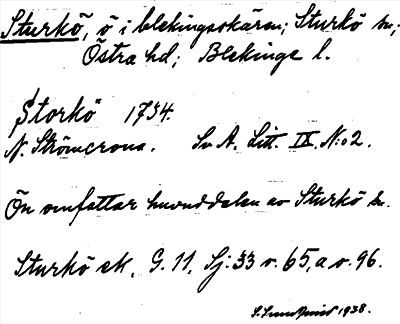 Sturkö, ö i blekingsskären; Sturkö sn;
Östra hd; Blekinge l.
Storkö 1734.
N. Strömcrona. Sv A. Litt. IX. N:o 2.
Ön omfattar huvuddelen av Sturkö sn.
Sturkö sk, G. 11, Sj: 33 o. 65, a o. 96.
S. Sundqvist 1938.